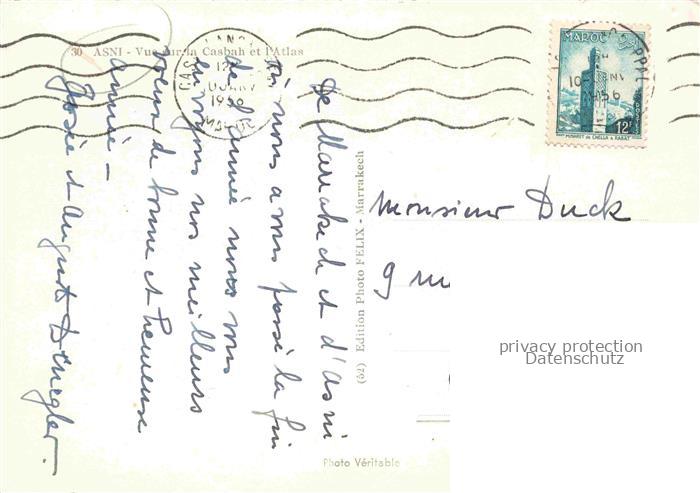 30 ASNI - Vue sur la Casbah et l'Atlas
De Marrakech et d'Asni
où nous avons passé la fin
de l'année nous vous
envoyons nos meilleurs
voeux de bonne et heureuse
année -
Josée et Auguste
(52) Edition Photo FELIX - Marrakech
Photo Véritable
MAROC
12F
MINARET de CHELLA à RABAT
1956
MAROC
Monsieur Duck
9 ru
privacy protection
Datenschutz